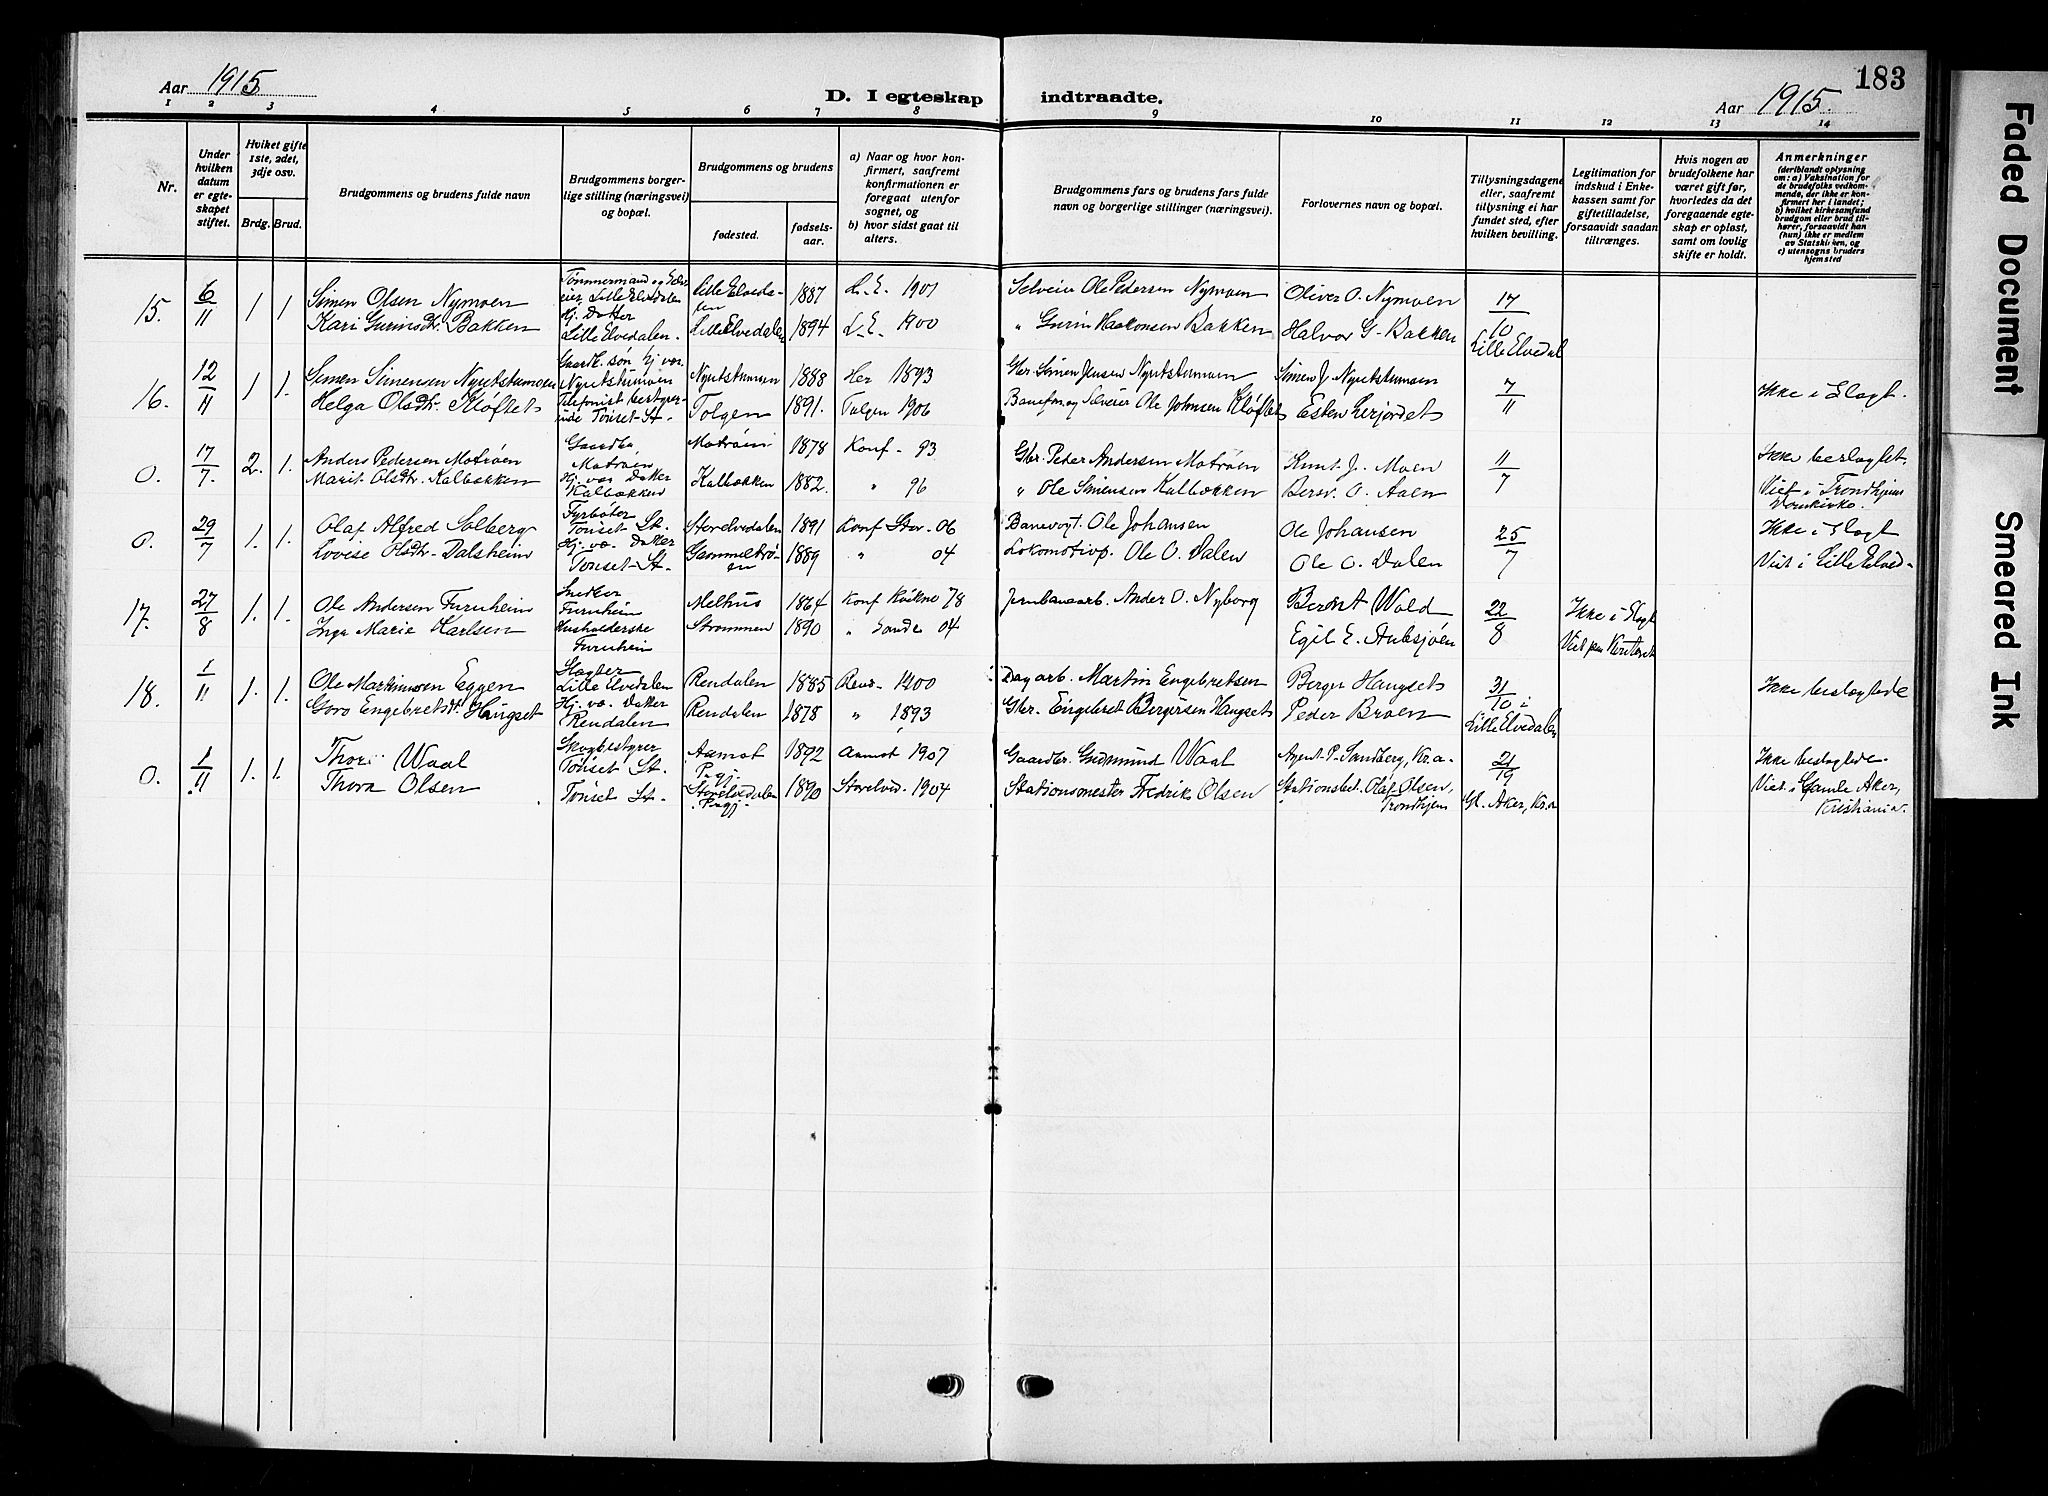 Aar 1915
D. I egteskap indtraadte.
Aar 1915.
183
1 2 3 4 5 6 7 8 9 10 11 12 13 14
Nr.
Under hvilken datum er egteskapet stiftet.
Hviket gifte 1ste, 2det, 3dje osv.
Brdg. Brud.
Brudgommens og brudens fulde navn
Brudgommens borgerlige stilling (næringsvei) og bopæl.
Brudgommens og brudens
fødested.
fødselsaar.
a) Naar og hvor konfirmert, saafremt konfirmationen er foregaat utenfor sognet, og
b) hvor sidst gaat til alters.
Brudgommens fars og brudens fars fulde navn og borgerlige stillinger (næringsvei).
Forlovernes navn og bopæl.
Tillysningsdagene eller, saafremt tillysning ei har fundet sted, efter hvilken bevilling.
Legitimation for indskud i Enkekassen samt for giftetilladelse, forsaavidt saadan tiltrænges.
Hvis nogen av brudefolkene har været gift før, hvorledes da det foregaaende egteskap er opløst, samt om lovlig skifte er holdt.
Anmerkninger
(deriblandt oplysning om: a) Vaksination for de brudefolks vedkommende, der ikke er konfirmert her i landet; b) hvilket kirkesamfund brudgom eller brud tilhører, forsaavidt han (hun) ikke er medlem av Statskirken, og c) utensogns bruders hjemsted
15. 6/11 1 1 Simen Olsen Nymoen Tømmermand og Selveier, Lille Elvedalen Lille Elvedalen 1887 L. E. 1901 Selveier Ole Pedersen Nymoen Oliver O. Nymoen 17/10
Kari Gurinsdtr. Bakken Hj. Datter Lille Elvedalen. Lille Elvedalen 1894 L. E. 1900 " Gurin Haakonsen Bakken Halvor G. Bakken Lille Elvedal
16. 12/11 1 1. Simen Simensen Nyutstumoen Gaardb. søn hj. vær. Nyutstumoen Nyutstumoen 1888 Her 1893 Gbr. Simen Jensen Nyutstumoen Simen J. Nyutstumoen 7/11
Helga Olsdtr. Kløftet Telefonist Tønset St. Tolgen 1891. Tolgen 1906 Selveier Ole Johnsen Kløftet Esten Ikke i Slegt.
O. 17/7. 2. 1. Anders Pedersen Motrøen Gaardbr. Motrøen Motrøen 1878 Konf. 93 Gbr. Peder Andersen Motrøen Knut J. Moen 11/7 Ikke beslegtet.
Marit Olsdtr. Kalbækken Hj. vær. Datter Kalbækken Kalbækken 1882. " 96 " Ole Simensen Kalbækken Bersv. O. Aaen Viet i Trondhjems Domkirke.
O. 29/7 1. 1. Olaf Alfred Solberg Fyrbøter Tønset St. Storelvedalen 1891 Konf Stor. 06 Banevogt. Ole Johansen Ole Johansen 25/7 Ikke i Slegt
Lovise Olsdtr. Dalsheim Hj. væ. Datter Tønset St. Gammeltrøen 1889 " 04 Lokomotivp. Ole O. Dalen Ole O. Dalen Viet i Lille Elved.
17. 27/8 1. 1. Ole Andersen Furuheim Snekker Furuheim Melhus 1864 Konf Kvikne 78 Jernbanearb. Ander O. Nyborg Berdnt Wold 22/8 Ikke i Slegt
Inga Marie Karlsen Husholderske Furuheim Strømmen 1890 " Sande 04 Egil E. Aubsjøen Viet paa Kontoret
18. 1/11 1. 1. Ole Martinusen Eggen Lille Elvedalen Rendalen 1885 Rend. 1900 Dagarb. Martin Engebretsen Berger Haugset 31/10 i Ikke beslegtede
Goro Engebretsdt. Haugset Hj. væ. Datter Rendalen Rendalen 1878 " 1893 Gbr. Engebret Bergersen Haugset Peder Broen Lille Elvedalen
O. 1/11 1. 1. Thore Waal Skogbestyrer Tønset St. Aamot Prgj. 1892 Aamot 1907 Gaardbr. Gudmund Waal Agent P. Sandberg, Kr.a. 21/19 Ikke beslegtede.
Thora Olsen Tønset St. Storelvedalen Prgj. 1890 Storelved. 1904 Stationsmester Fredrik Olsen Stationsbet. Olaf Olsen, Trondhjem Gl. Aker, Kr.a Viet i Gamle Aker, Kristiania.
Faded Document
Smeared Ink